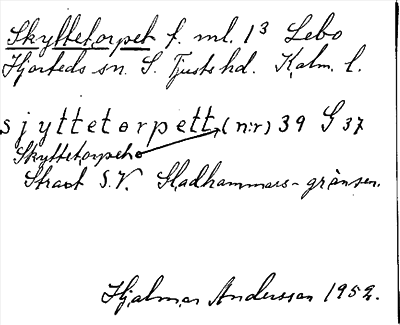 Skyttetorpet f. ml. 1³ Lebo
Hjorteds sn. S. Tjusts hd. Kalm. l.
sjyttetorpett, (n:r) 39 G 37
Skyttetorpet
Strax S.V. Sladhammars-gränsen.
Hjalmar Andersson 1952.